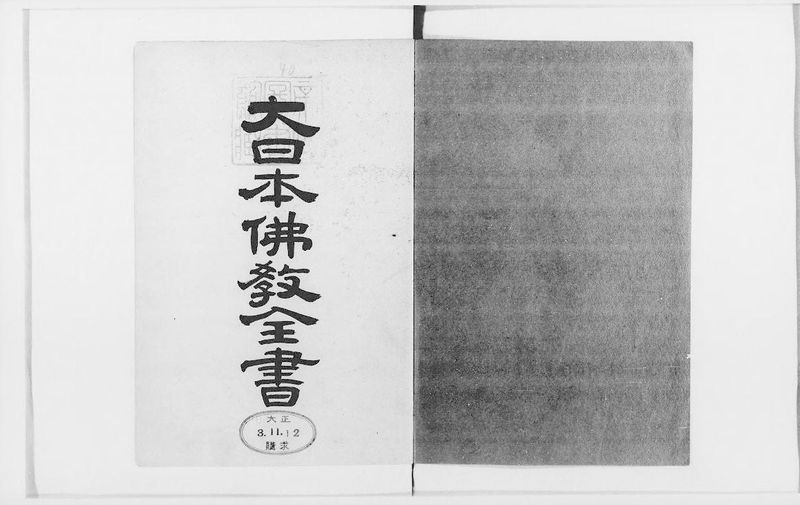 大日本佛教全書
大正
3.11.12
購求